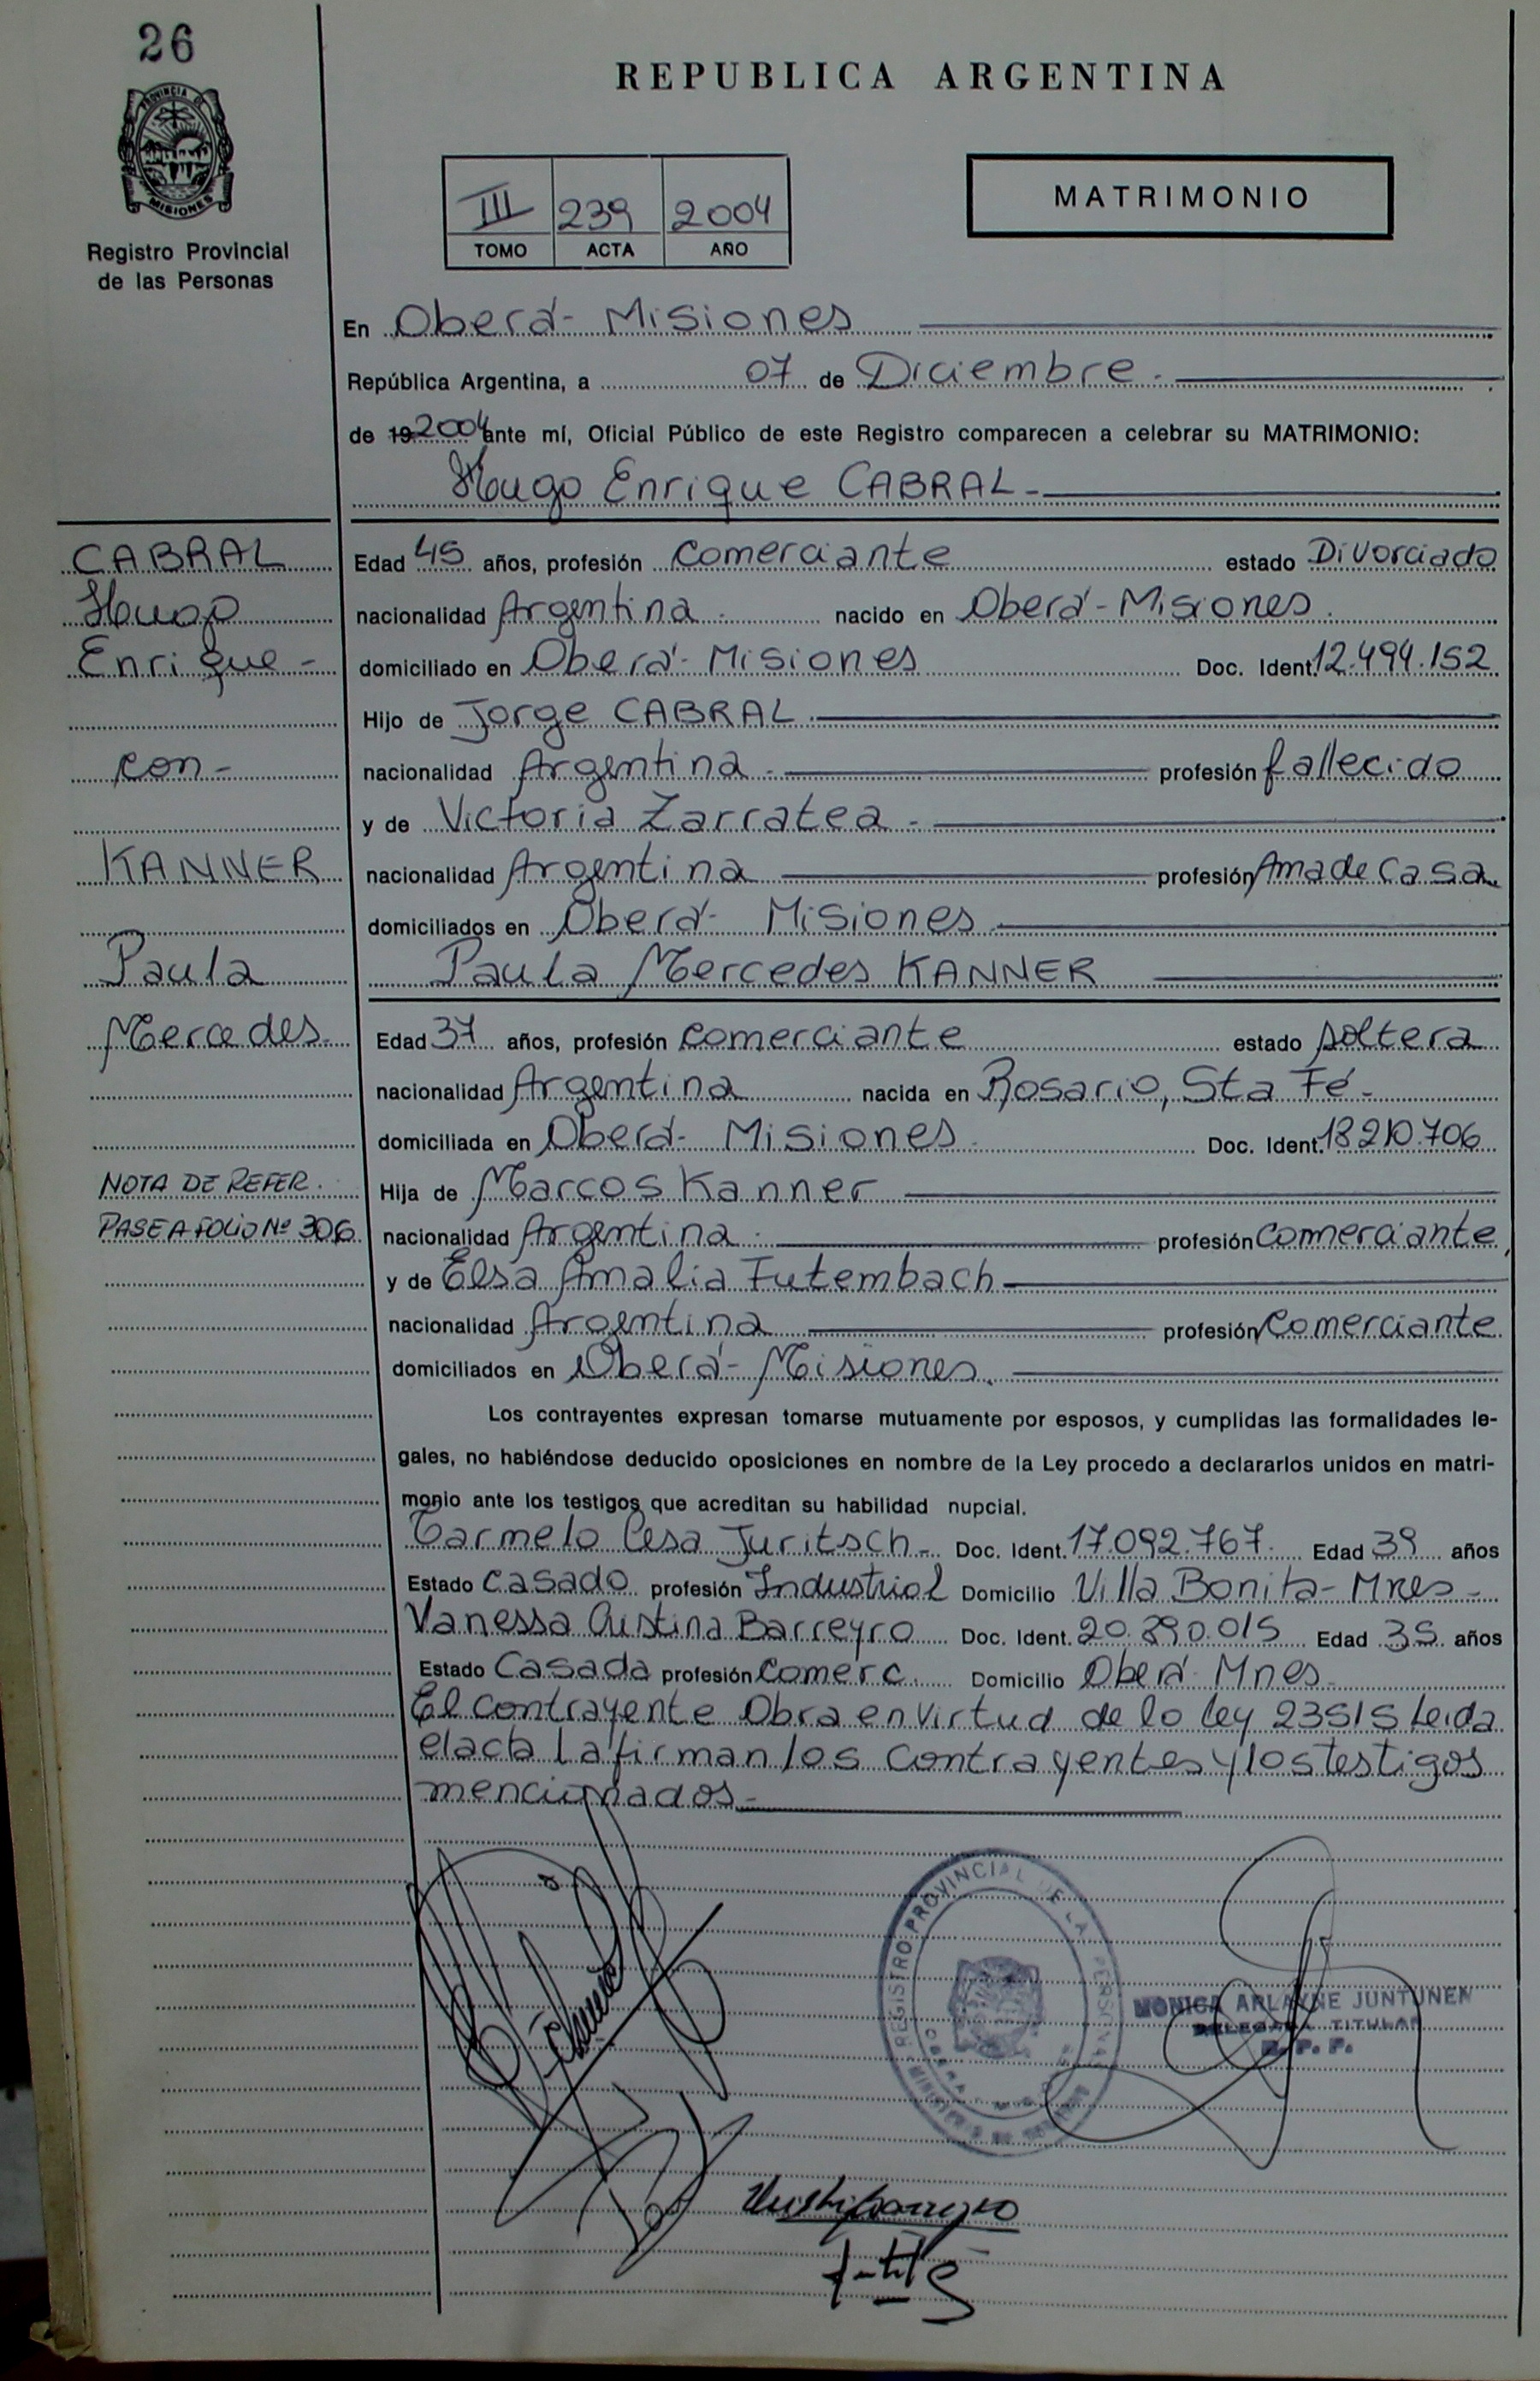 26
PROVINCIA DE
MISIONES
Registro Provincial
de las Personas
REPUBLICA ARGENTINA
III 239 2004
TOMO ACTA AÑO
MATRIMONIO
En Oberá- Misiones
República Argentina, a 07 de Diciembre.
de 19 2004 ante mí, Oficial Público de este Registro comparecen a celebrar su MATRIMONIO:
Hugo Enrique CABRAL-
CABRAL
Hugo
Enrique-
con-
KANNER
Paula
Mercedes.
NOTA DE REFER.
PASE A FOLIO Nº 306
Edad 45 años, profesión Comerciante estado Divorciado
nacionalidad Argentina. nacido en Oberá-Misiones.
domiciliado en Oberá- Misiones Doc. Ident. 12.494.152
Hijo de Jorge CABRAL.
nacionalidad Argentina. profesión fallecido
y de Victoria Zarratea.
nacionalidad Argentina profesión Ama de Casa
domiciliados en Oberá- Misiones
Paula Mercedes KANNER
Edad 37 años, profesión Comerciante estado Soltera
nacionalidad Argentina nacida en Rosario, Sta Fé-
domiciliada en Oberá- Misiones. Doc. Ident. 18.210.706
Hija de Marcos Kanner
nacionalidad Argentina. profesión Comerciante
y de Elsa Amalia Futembach
nacionalidad Argentina profesión Comerciante
domiciliados en Oberá- Misiones.
Los contrayentes expresan tomarse mutuamente por esposos, y cumplidas las formalidades le-
gales, no habiéndose deducido oposiciones en nombre de la Ley procedo a declararlos unidos en matri-
monio ante los testigos que acreditan su habilidad nupcial.
Carmelo Juritsch- Doc. Ident. 17.092.767. Edad 39 años
Estado Casado profesión Industrial Domicilio Villa Bonita- Mnes-
Vanessa Cristina Barreyro Doc. Ident. 20.890.015 Edad 35 años
Estado Casada profesión Comerc. Domicilio Oberá Mnes.
El contrayente Obra en Virtud de lo ley 23515 Leida
el acta la firman los contrayentes y los testigos
mencionados-
REGISTRO PROVINCIAL DE LAS PERSONAS
MONICA ARLAYNE JUNTUNEN
DELEGADA TITULAR
R. P. P.